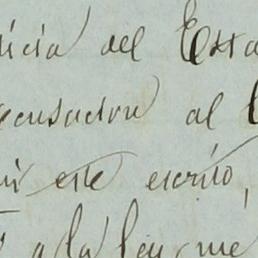 ticia del Esta
acusacion al
este escrito,
a la ley me